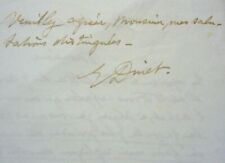 Veuillez agréer, Monsieur, mes salu-
tations distinguées -
E Dinet.